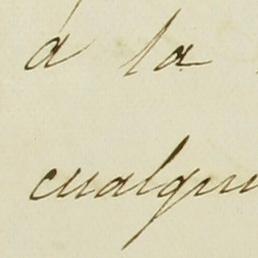 a la
cualqui